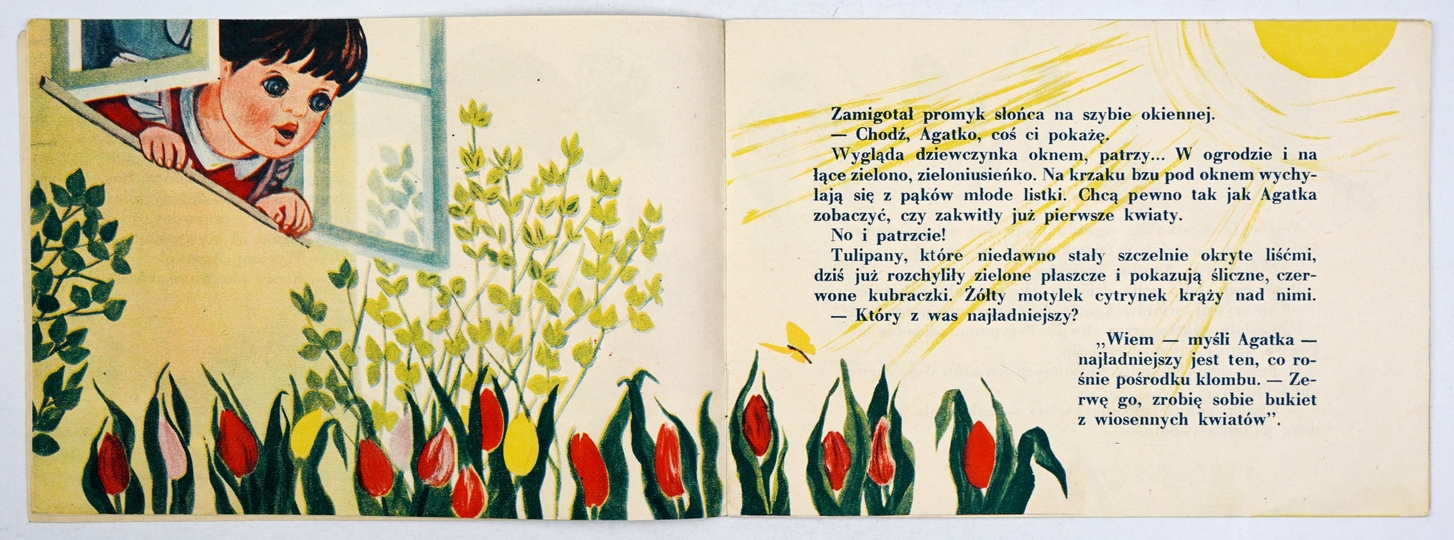 Zamigotał promyk słońca na szybie okiennej.
— Chodź, Agatko, coś ci pokażę.
Wygląda dziewczynka oknem, patrzy... W ogrodzie i na
łące zielono, zieloniusieńko. Na krzaku bzu pod oknem wychy-
lają się z pąków młode listki. Chcą pewno tak jak Agatka
zobaczyć, czy zakwitły już pierwsze kwiaty.
No i patrzcie!
Tulipany, które niedawno stały szczelnie okryte liśćmi,
dziś już rozchyliły zielone płaszcze i pokazują śliczne, czer-
wone kubraczki. Żółty motylek cytrynek krąży nad nimi.
— Który z was najładniejszy?
„Wiem — myśli Agatka —
najładniejszy jest ten, co ro-
śnie pośrodku klombu. — Ze-
rwę go, zrobię sobie bukiet
z wiosennych kwiatów”.